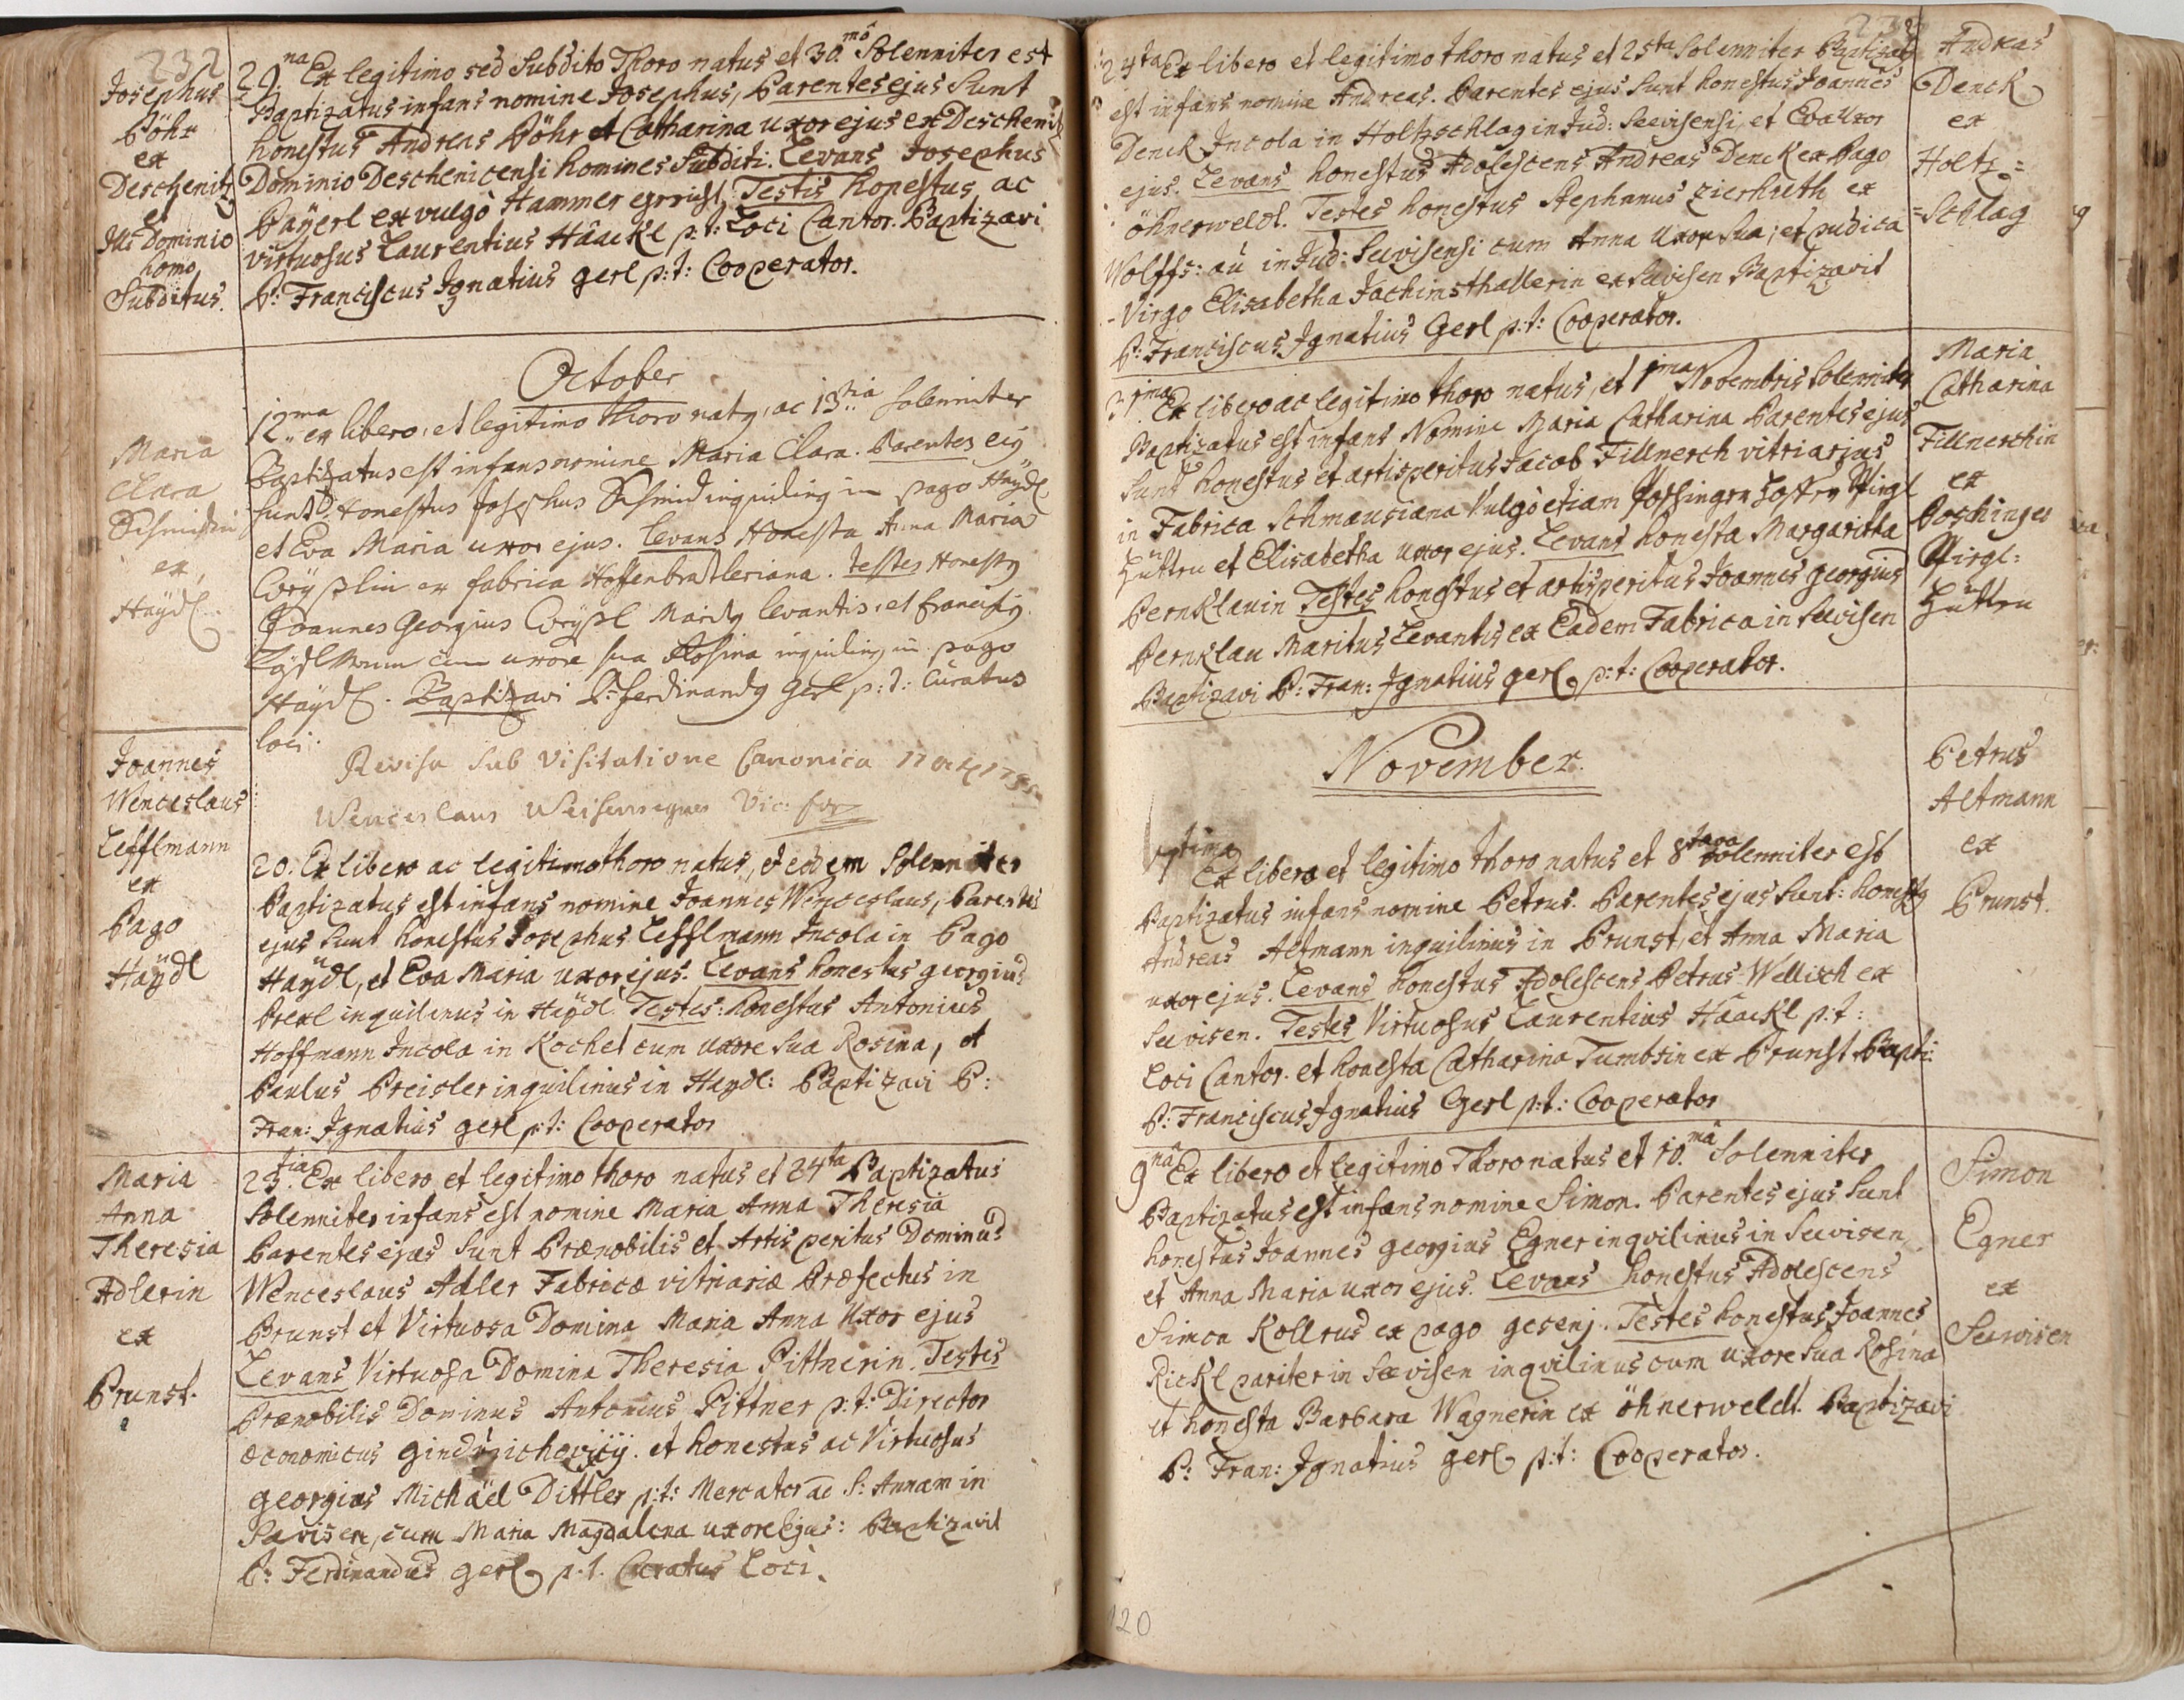 232
Josephus
Böhr
ex
Deschenitz
et
Ille Dominio
homo
Subditus.
29.na Ex legitimo sed Subdito Thoro natus et 30.mô Solenniter est
Baptizatus infans nomine Josephus, Parentes ejus Sunt
honestus Andreas Böhr et Catharina uxor ejus ex Deschenitz
Dominio Deschenicensi homines Subditi. Levans Josephus
Baÿerl ex vulgò Hammer Testis honestus, ac
virtuosus Laurentius Hâackl p:t: Loci Cantor. Baptizavi
P: Franciscus Ignatius gerl p:t: Cooperator.
October
Maria
Clara
Schmidin
ex
Haÿdl
12ma ex libero, et legitimo thoro natq, ac 13tia Solenniter
Baptizatus est infans nomine Maria Clara. Parentes ejq
sunt Honestus Josephus Schmid inquilinq in pago Haÿdl
et Eva Maria uxor ejus. levans Honesta Anna Maria
ex fabrica . testes Honestq
Joannes Georgius Maritq levantis, et francisq
cum uxore sua Rosina inquilinq in pago
Haÿdl. Baptizavi P: ferdinandq Gerl p:t: Curatus
loci.
Revisa Sub Visitatione Canonica 17
Wenceslaus Vic: for
Joannes
Wenceslaus
Lefflmann
ex
Pago
Haÿdl
20. Ex libero ac legitimo thoro natus, et eodem Solenniter
Baptizatus est infans nomine Joannes Wenceslaus, Parentes
ejus Sunt honestus Josephus Lefflmann Incola in Pago
Haÿdl, et Eva Maria uxor ejus. Levans honestus georgius
Prexl inquilinus in Haÿdl. Testes: honestus Antonius
Hoffmann Incola in Kochet cum uxore Sua Rosina, et
Paulus Preisler inquilinus in Haydl: Baptizavi P:
Fran: Ignatius gerl p:t: Cooperator
Maria
Anna
Theresia
Adlerin
ex
Prunst.
23.tia Ex libero et legitimo thoro natus et 24ta Baptizatus
Solenniter infans est nomine Maria Anna Theresia
Parentes ejus Sunt Prænobilis et Artis peritus Dominus
Wenceslaus Adler Fabricæ vitriariæ Præfectus in
Prunst et Virtuosa Domina Maria Anna Uxor ejus
Levans Virtuosa Domina Theresia Pittnerin. Testes
Prænobilis Dominus Antonius Pittner p:t: Director
œconomicus et honestus ac Virtuosus
georgius Michäel Dittler p:t: Mercator ac S: Annam in
Saviser, cum Maria Magdalena uxore ejus: Baptizavit
P: Ferdinandus gerl p.t. Curatus Loci.
24ta Ex libero et legitimo thoro natus et 25ta Solenniter Baptizatus
est infans nomine Andreas. Parentes ejus Sunt honestus Joannes
Denck Incola in Holtzschlag in Jud: Seevisensi, et Eva Uxor
ejus. Levans honestus Adolescens Andreas Denck ex Pago
öhnerweldt. Testes honestus Stephanus Zierhuth ex
Wolffs: au in Jud: Seevisensi cum Anna Uxore Sua; et pudica
Virgo Elisabetha Jachimsthallerin ex Seevisen Baptizavit
P: Franciscus Ignatius Gerl p:t: Cooperator.
Andreas
Denck
ex
Holtz=
=Schlag
31ma Ex libero ac legitimo thoro natus, et 1ma Novembris Solenniter
Baptizatus est infans Nomine Maria Catharina Parentes ejus
Sunt honestus et artis peritus Jacob Fillnerch vitriarius
in Fabrica Schmausiana Vulgò etiam
Hüttn et Elisabetha uxor ejus. Levans honesta Margaritha
Pernklauin Testes honestus et artis peritus Joannes georgius
Pernklau Maritus Levantis ex Eadem Fabrica in Seevisen
Baptizavi P: Fran: Ignatius gerl p:t: Cooperator.
Maria
Catharina
Fillnerchin
ex
Poschinger
Hüttn
November.
7tima Ex libero et legitimo thoro natus et 8tava Solenniter est
Baptizatus infans nomine Petrus. Parentes ejus Sunt: honestq
Andreas Altmann inquilinus in Prunst, et Anna Maria
uxor ejus. Levans honestus Adolescens Petrus Wellisch ex
Seevisen. Testes Virtuosus Laurentius Hâackl p:t:
Loci Cantor. et honesta Catharina Tumbsin ex Prunst Bapti:
P: Franciscus Ignatius Gerl p:t: Cooperator
Petrus
Altmann
ex
Prunst.
9.nâ Ex libero et legitimo Thoro natus et 10.mâ Solenniter
Baptizatus est infans nomine Simon. Parentes ejus Sunt
honestus Joannes georgius Egner inqvilinus in Seevisen
et Anna Maria uxor ejus. Levans honestus Adolescens
Simon Kollrus ex pago gesenj. Testes honestus Joannes
Rickl pariter in Seevisen inqvilinus cum uxore Sua Rosina
et honesta Barbara Wagnerin ex öhnerweldt. Baptizavi
P: Fran: Ignatius gerl p:t: Cooperator.
Simon
Egner
ex
Seewisen
120